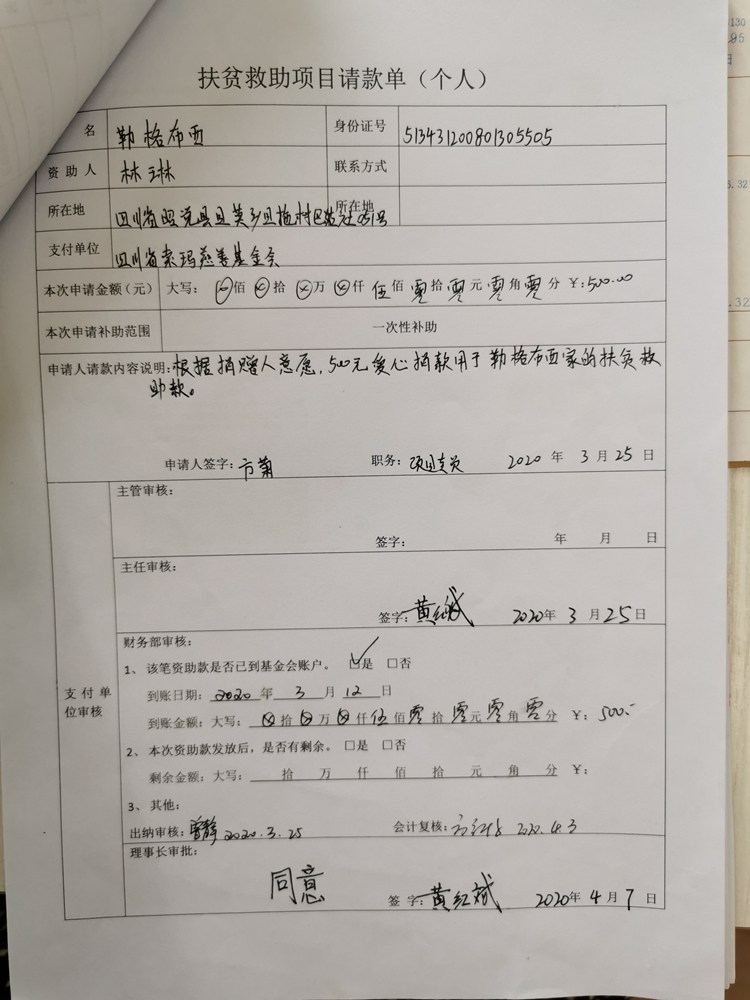 扶贫救助项目请款单（个人）
名 勒格布西 身份证号 513431200801305505
资助人 林琳 联系方式
所在地 四川省昭觉县且莫乡且拖村 所在地
支付单位 四川省索玛慈善基金会
本次申请金额（元） 大写： 佰 拾 万 仟 伍佰零拾零元零角零分 ￥：500.00
本次申请补助范围 一次性补助
申请人请款内容说明：根据捐赠人意愿，500元爱心捐款用于勒格布西家的扶贫救
助款。
申请人签字：方菊 职务：项目专员 2020年3月25日
主管审核：
签字： 年 月 日
主任审核：
签字：黄红斌 2020年3月25日
支付单位审核
财务部审核：
1、该笔资助款是否已到基金会账户。 ☑是 □否
到账日期：2020年3月12日
到账金额：大写： 拾 万 仟伍佰零拾零元零角零分 ￥：500.-
2、本次资助款发放后，是否有剩余。 □是 □否
剩余金额：大写： 拾 万 仟 佰 拾 元 角 分 ￥：
3、其他：
出纳审核：曾静 2020.3.25 会计复核： 2020.4.3
理事长审批：
同意
签字：黄红斌 2020年4月7日
130
.95
日
5.32
.32